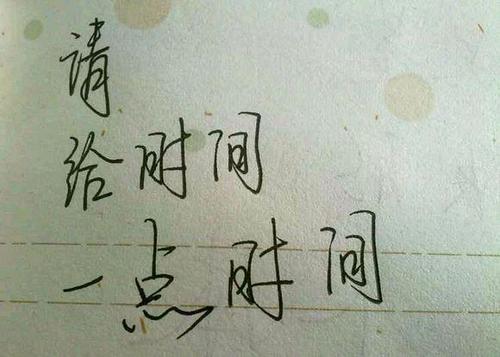 请
给时间
一点时间